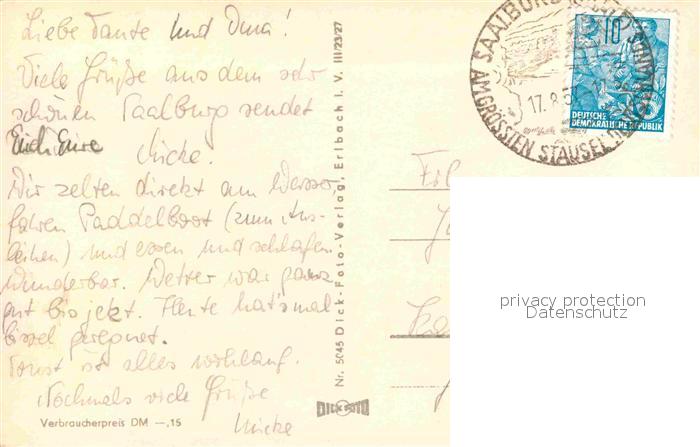 Liebe Tante und Oma!
Viele Grüße aus dem sehr
schönen Saalburg sendet
Euch Eure Micke.
Wir zelten direkt am Wasser,
fahren Paddelboot (zum Aus-
leihen) und essen und schlafen
wunderbar. Wetter war ganz
gut bis jetzt. Heute hat's mal
bissel geregnet.
Sonst ist alles wohlauf.
Nochmals viele Grüße
Micke
Verbraucherpreis DM —,15
Nr. 5045 Dick-Foto-Verlag, Erlbach i. V. III/23/27
DICK FOTO
SAALBURG
AM GRÖSSTEN STAUSEE
17.8.5
10
DEUTSCHE
DEMOKRATISCHE REPUBLIK
privacy protection
Datenschutz